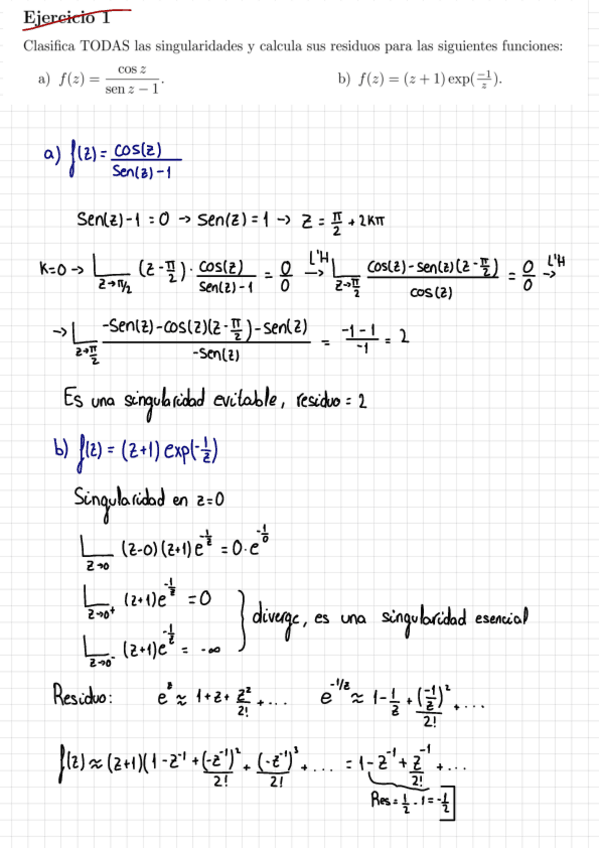 Ejercicio 1
Clasifica TODAS las singularidades y calcula sus residuos para las siguientes funciones:
a) f(z) = cos z / (sen z − 1).    b) f(z) = (z + 1) exp(−1/z).
a) f(z) = cos(z) / (Sen(z)-1)
Sen(z)-1 = 0 → Sen(z) = 1 → z = π/2 + 2Kπ
K=0 → L_{z→π/2} (z-π/2) · cos(z) / (sen(z)-1) = 0/0 L'H → L_{z→π/2} (cos(z)-sen(z)(z-π/2)) / cos(z) = 0/0 L'H →
→ L_{z→π/2} (-Sen(z)-cos(z)(z-π/2)-sen(z)) / -Sen(z) = (-1-1)/-1 = 2
Es una singularidad evitable, residuo = 2
b) f(z) = (z+1) exp(-1/z)
Singularidad en z=0
L_{z→0} (z-0)(z+1)e^{-1/z} = 0·e^{-1/0}
L_{z→0⁺} (z+1)e^{-1/z} = 0
diverge, es una singularidad esencial
L_{z→0⁻} (z+1)e^{-1/z} = -∞
Residuo: e^z ≈ 1+z+ z²/2! + ... e^{-1/z} ≈ 1-1/z + (-1/z)²/2! + ...
f(z) ≈ (z+1)(1-z⁻¹ + (-z⁻¹)²/2! + (-z⁻¹)³/2! + ... = 1-z⁻¹ + z⁻¹/2! + ...
Res = 1/2 - 1 = -1/2